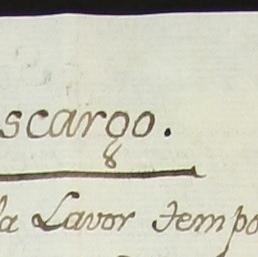 scargo.
la Lavor tempo